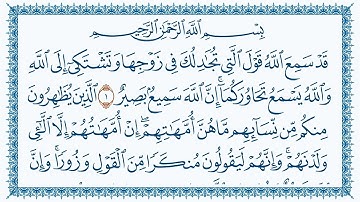 بِسْمِ ٱللَّهِ ٱلرَّحْمَٰنِ ٱلرَّحِيمِ
قَدْ سَمِعَ ٱللَّهُ قَوْلَ ٱلَّتِي تُجَٰدِلُكَ فِي زَوْجِهَا وَتَشْتَكِيٓ إِلَى ٱللَّهِ
وَٱللَّهُ يَسْمَعُ تَحَاوُرَكُمَآ إِنَّ ٱللَّهَ سَمِيعُۢ بَصِيرٌ ١ ٱلَّذِينَ يُظَٰهِرُونَ
مِنكُم مِّن نِّسَآئِهِم مَّا هُنَّ أُمَّهَٰتِهِمْ ۖ إِنْ أُمَّهَٰتُهُمْ إِلَّا ٱلَّٰٓـِٔي
وَلَدْنَهُمْ ۚ وَإِنَّهُمْ لَيَقُولُونَ مُنكَرًا مِّنَ ٱلْقَوْلِ وَزُورًا ۚ وَإِنَّ